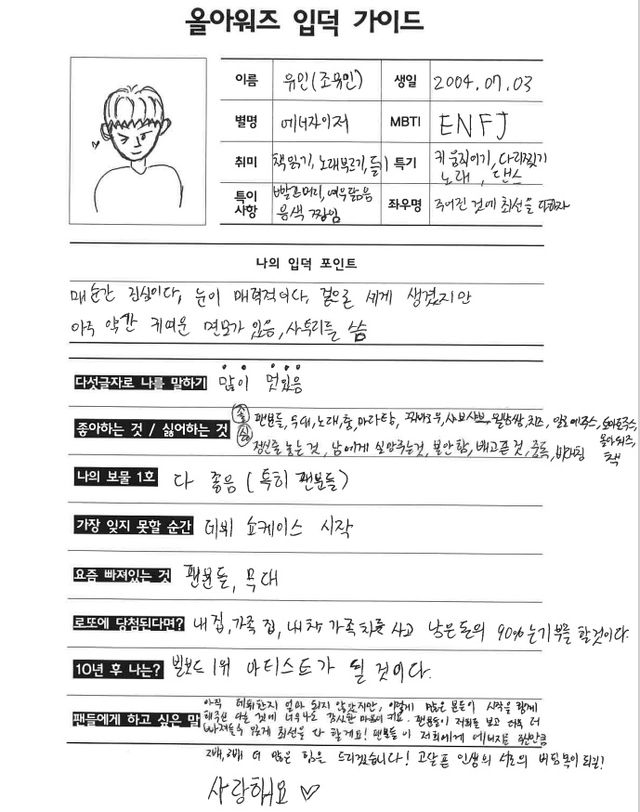 올아워즈 입덕 가이드
이름 유인(조유민) 생일 2004.07.03
별명 에너자이저 MBTI ENFJ
취미 책읽기, 노래부르기, 등 특기 키 움직이기, 다리찢기
노래, 댄스
특이 사항 빨간머리, 여우닮음
음색 짱임
좌우명 주어진 것에 최선을 다하자
나의 입덕 포인트
매 순간 진심이다, 눈이 매력적이다, 겉으로 세게 생겼지만
아주 약간 귀여운 면모가 있음, 사투리를 씀
다섯글자로 나를 말하기 많이 멋있음
좋아하는 것 / 싫어하는 것 좋 팬분들, 무대, 노래, 춤, 마라탕, 꿔바로우, 샤브샤브, 월남쌈, 치즈, 토마토주스,
올아워즈,
책
싫 정선을 넘는 것, 남에게 실망주는것, 불안함, 배고픈 것,
나의 보물 1호 다 좋음 (특히 팬분들)
가장 잊지 못할 순간 데뷔 쇼케이스 시작
요즘 빠져있는 것 팬분들, 무대
로또에 당첨된다면? 내 집, 가족 집, 내 차, 가족 차를 사고 남은 돈의 90%는 기부를 할것이다.
10년 후 나는? 빌보드 1위 아티스트가 될 것이다.
팬들에게 하고 싶은 말 아직 데뷔한지 얼마 되지 않았지만, 이렇게 많은 분들이 시작을 함께
해주신 다는 것에 너무나도 감사한 마음이 커요. 팬분들이 저희를 보고 더욱 더
빠져들수 있게 최선을 다 할게요! 팬분들이 저희에게 에너지를 주신만큼
2배, 3배 더 많은 힘을 드리겠습니다! 고달픈 인생의 서로의 버팀목이 되길!
사랑해요 ♡